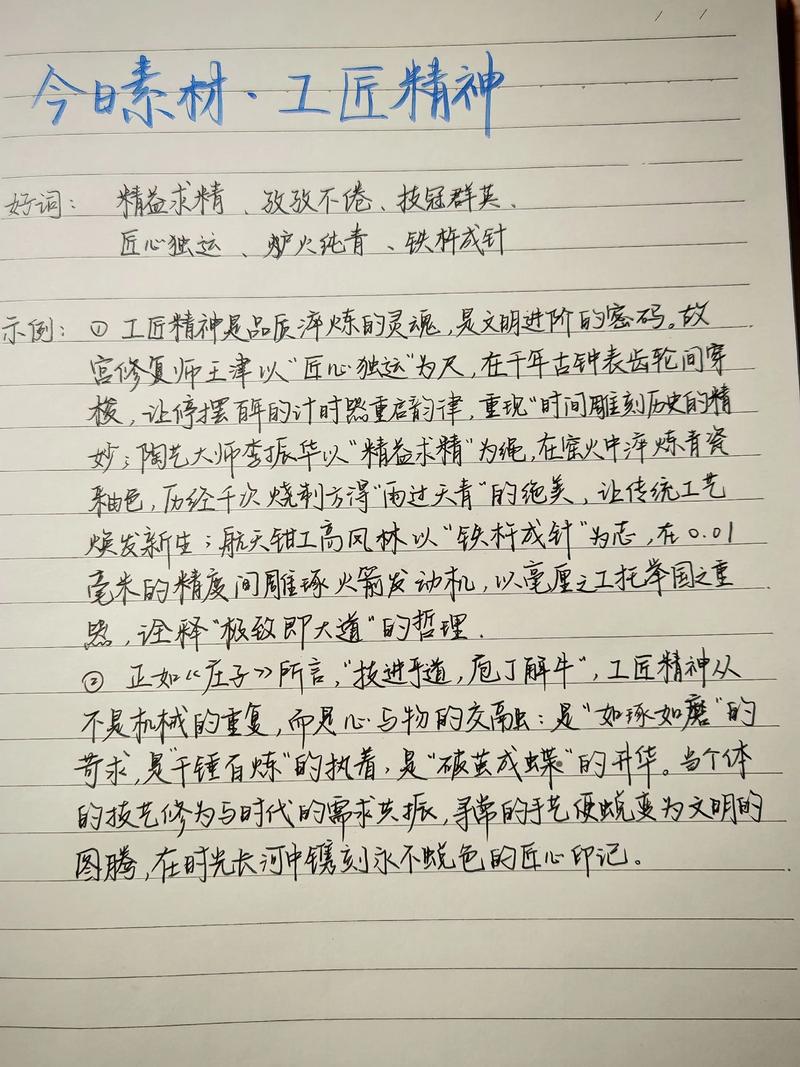 今日素材·工匠精神
好词: 精益求精、孜孜不倦、技冠群英、
匠心独运、炉火纯青、铁杵成针
示例: ① 工匠精神是品质淬炼的灵魂,是文明进阶的密码。故
宫修复师王津以“匠心独运”为尺,在千年古钟表齿轮间穿
梭,让停摆百年的计时器重启韵律,重现“时间雕刻历史的精
妙;陶艺大师李振华以“精益求精”为绳,在窑火中淬炼青瓷
釉色,历经千次烧制方得“雨过天青”的绝美,让传统工艺
焕发新生;航天钳工高风林以“铁杵成针”为志,在0.01
毫米的精度间雕琢火箭发动机,以毫厘之工托举国之重
器,诠释“极致即大道”的哲理.
② 正如《庄子》所言,“技进乎道,庖丁解牛”,工匠精神从
不是机械的重复,而是心与物的交融:是“如琢如磨”的
苛求,是“千锤百炼”的执着,是“破茧成蝶”的升华。当个体
的技艺修为与时代的需求共振,寻常的手艺便蜕变为文明的
图腾,在时光长河中镌刻永不蜕色的匠心印记。